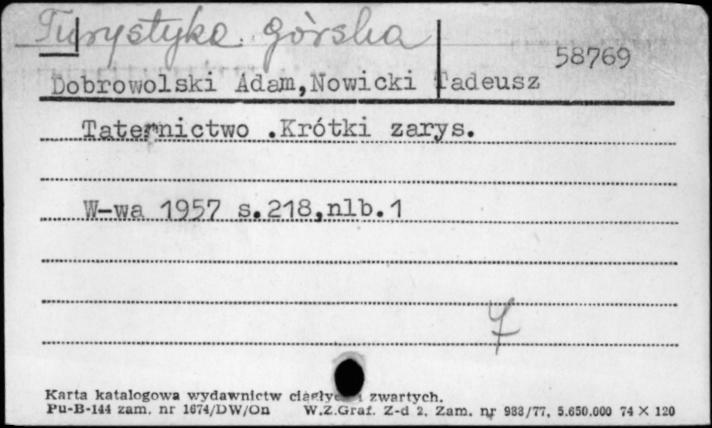 Turystyka górska
58769
Dobrowolski Adam,Nowicki Tadeusz
Taternictwo .Krótki zarys.
W-wa 1957 s.218,nlb.1
7
Karta katalogowa wydawnictw ciągłych i zwartych.
Pu-B-144 zam. nr 1674/DW/On W.Z.Graf. Z-d 2. Zam. nr 983/77, 5.650.000 74 × 120